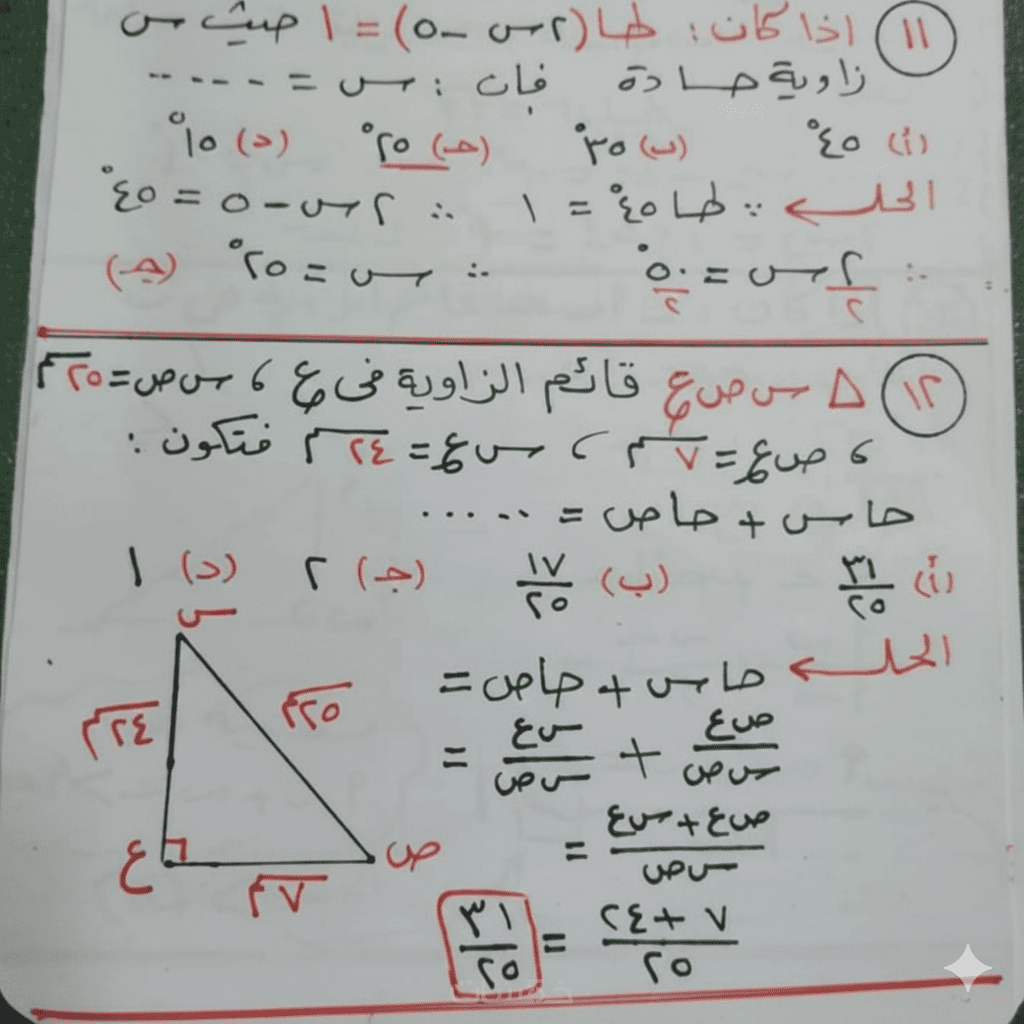 ١١ اذا كان : طا (٢س - ٥) = ١ حيث س
زاوية حادة فإن : س = ......
(أ) ٤٥° (ب) ٣٥° (جـ) ٢٥° (د) ١٥°
الحل ← ∵ طا ٤٥° = ١ ∴ ٢س - ٥ = ٤٥°
∴ ٢س/٢ = ٥٠°/٢ ∴ س = ٢٥° (جـ)
١٢ △ س ص ع قائم الزاوية فى ع ، س ص = ٢٥ سم
، ص ع = ٧ سم ، س ع = ٢٤ سم فتكون :
حا س + حا ص = .....
(أ) ٣١/٢٥ (ب) ١٧/٢٥ (جـ) ٢ (د) ١
الحل ← حا س + حا ص =
ص ع/س ص + س ع/س ص =
ص ع + س ع/س ص =
٧ + ٢٤/٢٥ = ٣١/٢٥
س
٢٤ سم
٢٥ سم
ع
ص
٧ سم